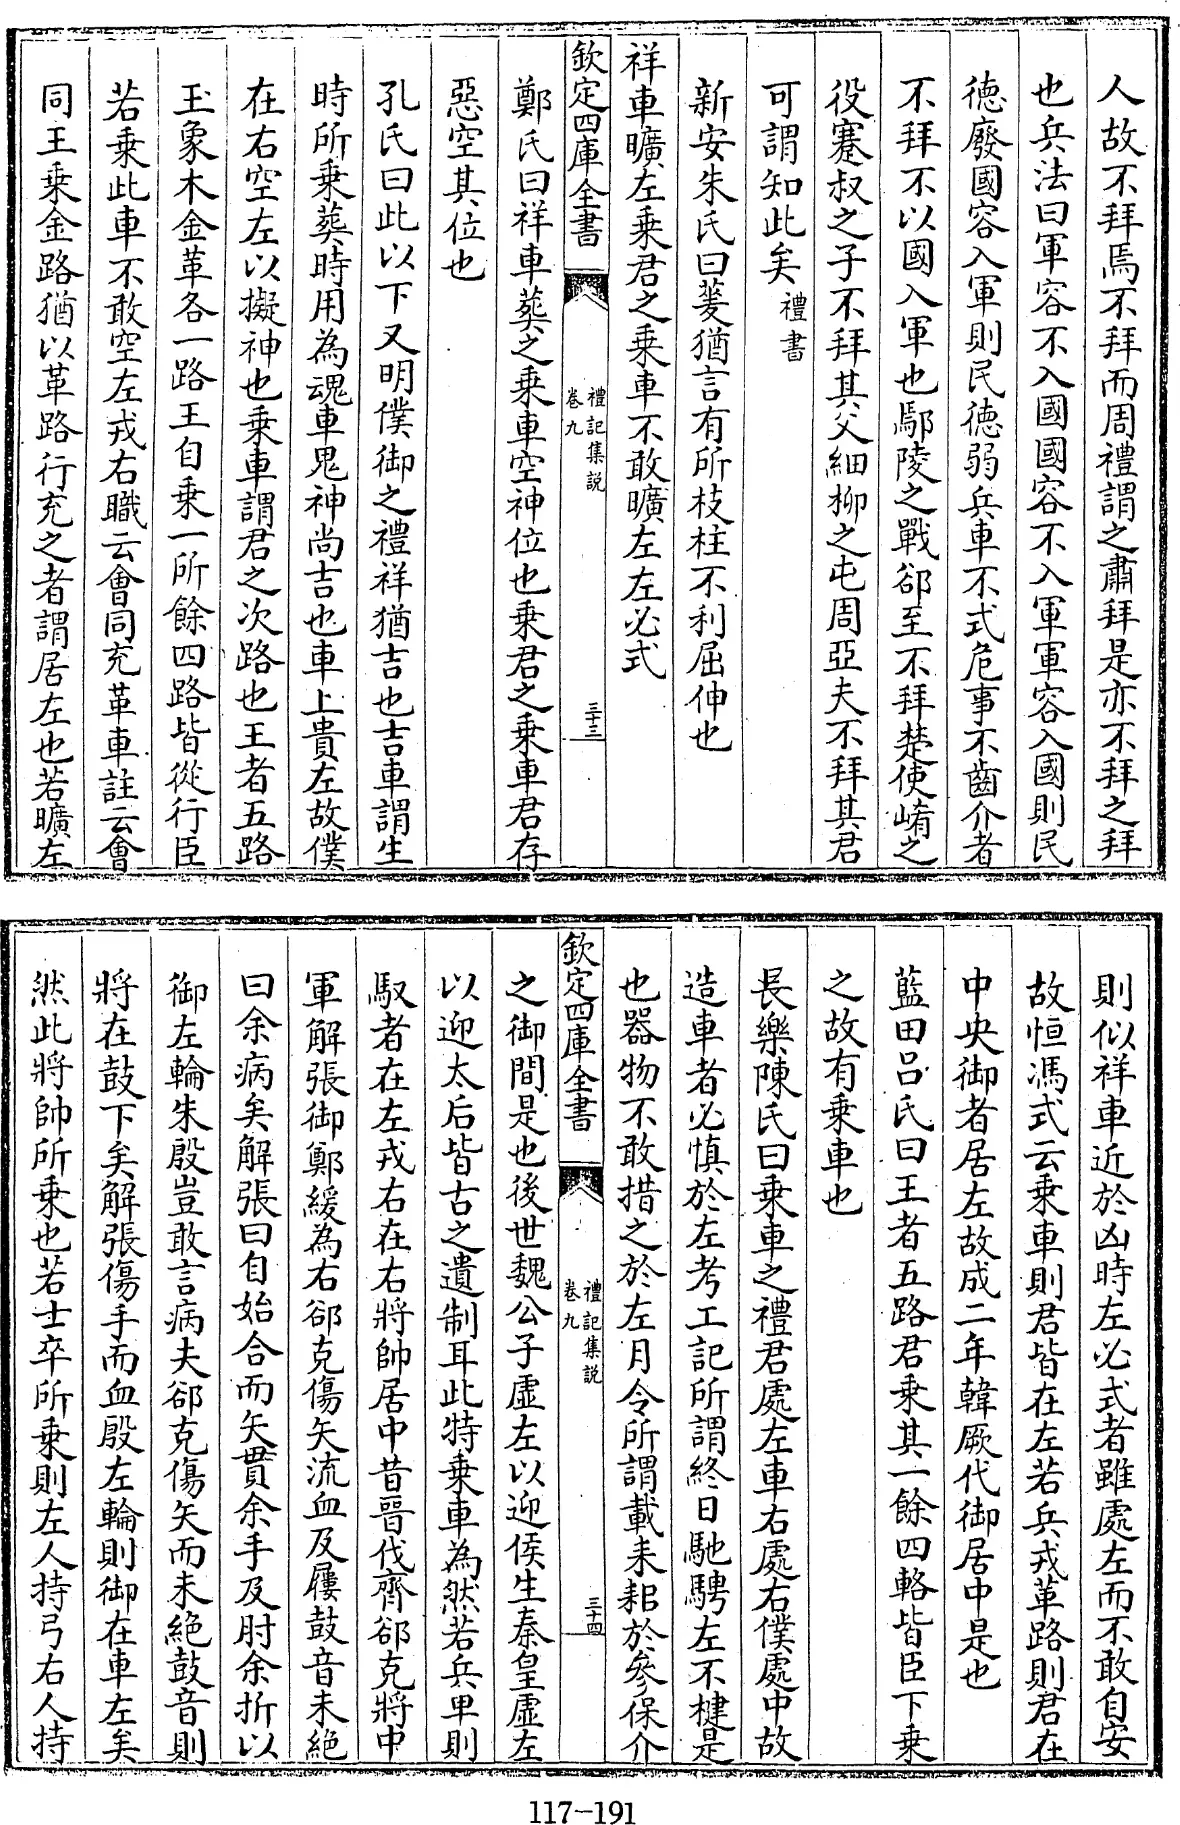 人故不拜焉不拜而周禮謂之肅拜是亦不拜之拜
也兵法曰軍容不入國國容不入軍軍容入國則民
德廢國容入軍則民德弱兵車不式危事不齒介者
不拜不以國入軍也鄢陵之戰郤至不拜楚使崤之
役蹇叔之子不拜其父細柳之屯周亞夫不拜其君
可謂知此矣禮書
新安朱氏曰蓌猶言有所枝柱不利屈伸也
祥車曠左乘君之乘車不敢曠左左必式
欽定四庫全書
禮記集說
卷九
三十三
鄭氏曰祥車葬之乘車空神位也乘君之乘車君存
惡空其位也
孔氏曰此以下又明僕御之禮祥猶吉也吉車謂生
時所乘葬時用為魂車鬼神尚吉也車上貴左故僕
在右空左以擬神也乘車謂君之次路也王者五路
玉象木金革各一路王自乘一所餘四路皆從行臣
若乘此車不敢空左戎右職云會同充革車註云會
同王乘金路猶以革路行充之者謂居左也若曠左
則似祥車近於凶時左必式者雖處左而不敢自安
故恒馮式云乘車則君皆在左若兵戎革路則君在
中央御者居左故成二年韓厥代御居中是也
藍田呂氏曰王者五路君乘其一餘四輅皆臣下乘
之故有乘車也
長樂陳氏曰乘車之禮君處左車右處右僕處中故
造車者必慎於左考工記所謂終日馳騁左不楗是
也器物不敢措之於左月令所謂載耒耜於參保介
欽定四庫全書
禮記集說
卷九
三十四
之御間是也後世魏公子虛左以迎侯生秦皇虛左
以迎太后皆古之遺制耳此特乘車為然若兵車則
馭者在左戎右在右將帥居中昔晉伐齊郤克將中
軍解張御鄭緩為右郤克傷矢流血及屨鼓音未絕
曰余病矣解張曰自始合而矢貫余手及肘余折以
御左輪朱殷豈敢言病夫郤克傷矢而未絕鼓音則
將在鼓下矣解張傷手而血殷左輪則御在車左矣
然此將帥所乘也若士卒所乘則左人持弓右人持
117-191